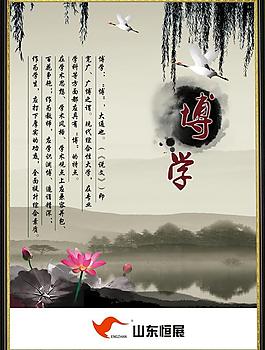 博学
博学:“博”,大通也。(《说文》)即
宽广、广博之谓。现代综合性大学,在专业
学科等方面都应具有“博”的特点。
在学术思想、学术风格、学术观点上应兼容并包、
百花争艳;作为教师,应学识渊博、道谊精深;
作为学生,应打下厚实的功底,全面提升综合素质。
山东恒展
ENGZHAN